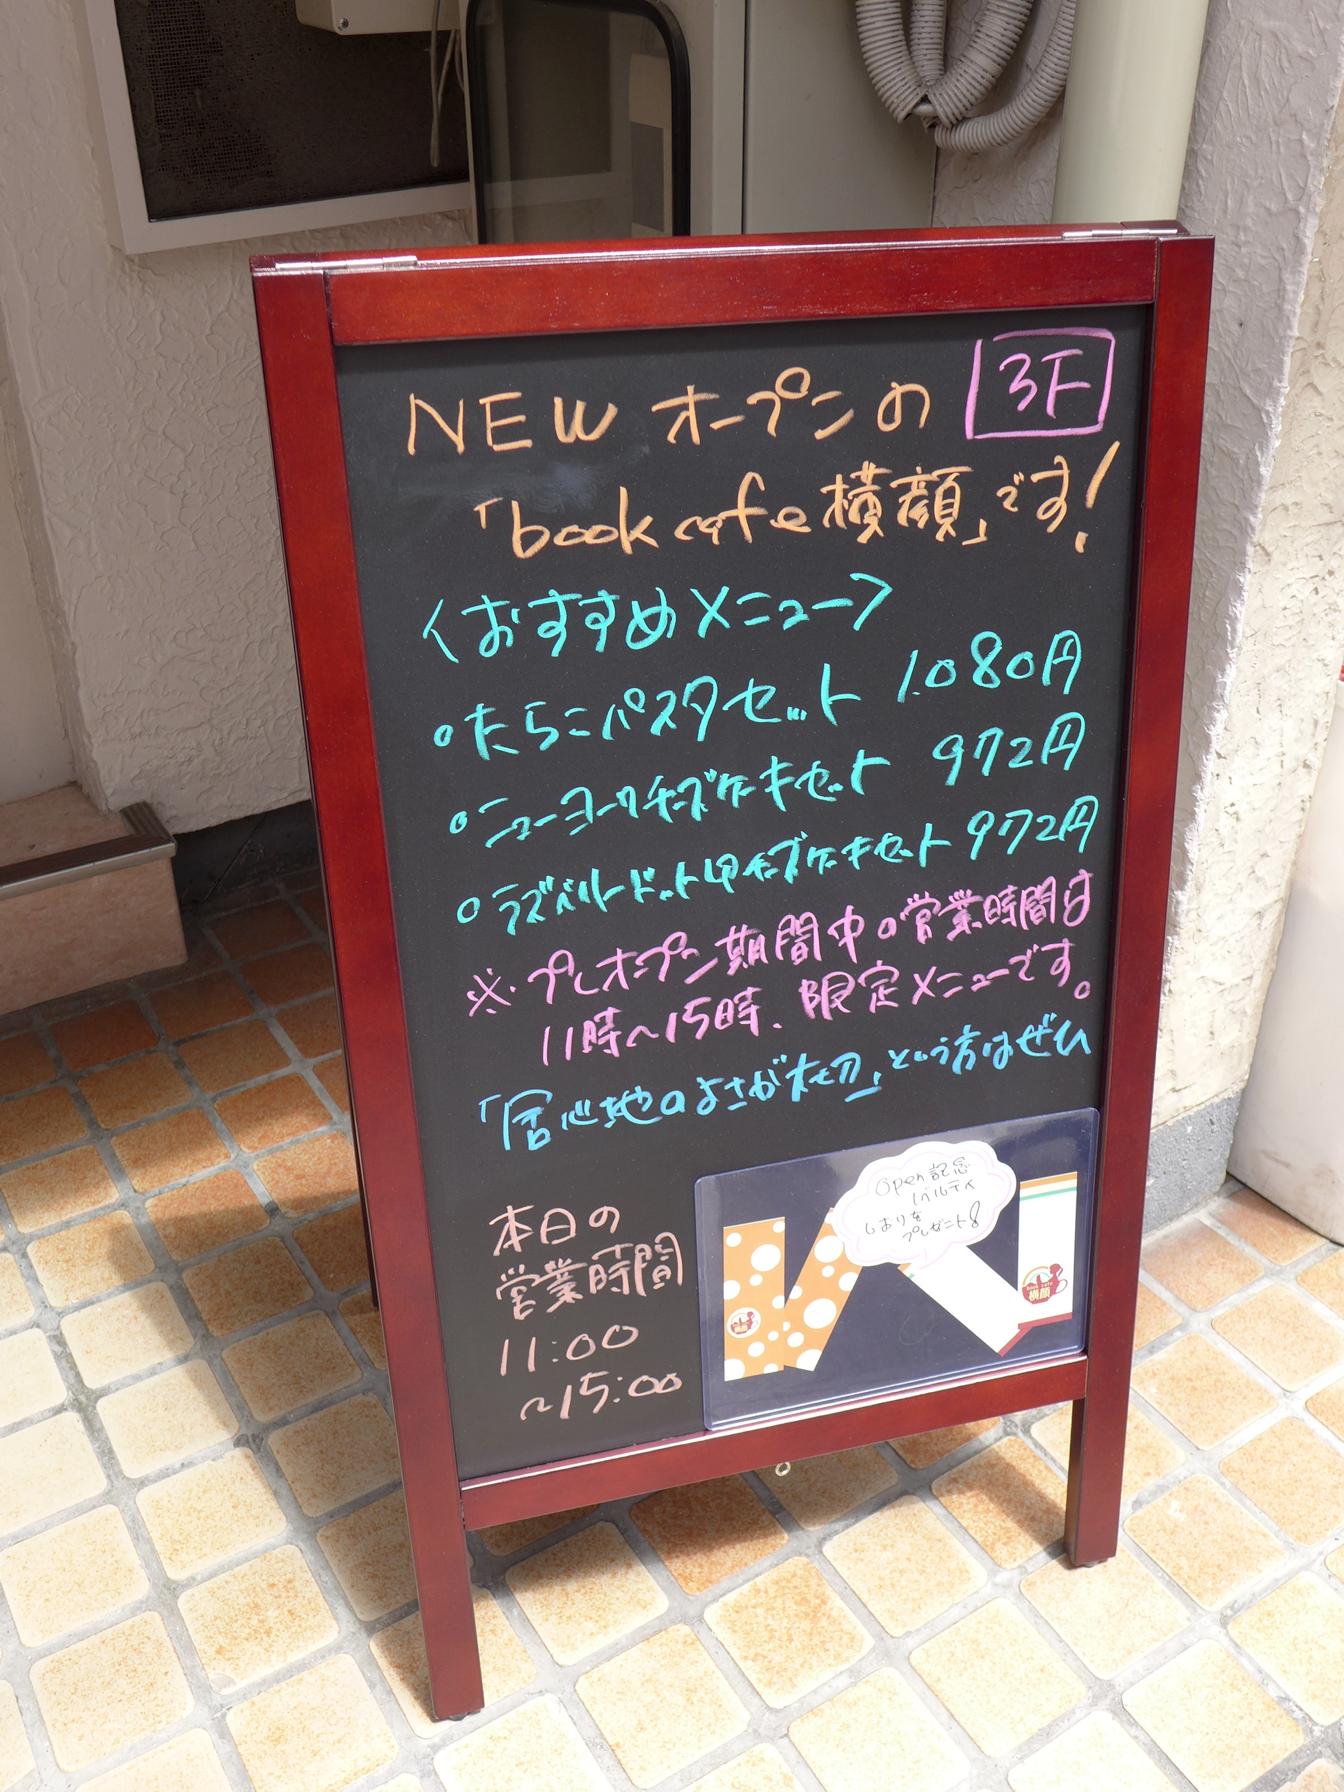 NEW オープンの 3F
「book cafe 横顔」です!
〈おすすめメニュー〉
○たらこパスタセット 1.080円
○ニューヨークチーズケーキセット 972円
○ラズベリードットレアチーズケーキセット 972円
※プレオープン期間中の営業時間は
11時〜15時、限定メニューです。
「居心地のよさが大切」という方はぜひ
本日の
営業時間
11:00
〜15:00
Open記念
ノベルティ
しおりを
プレゼント!
横顔
横顔